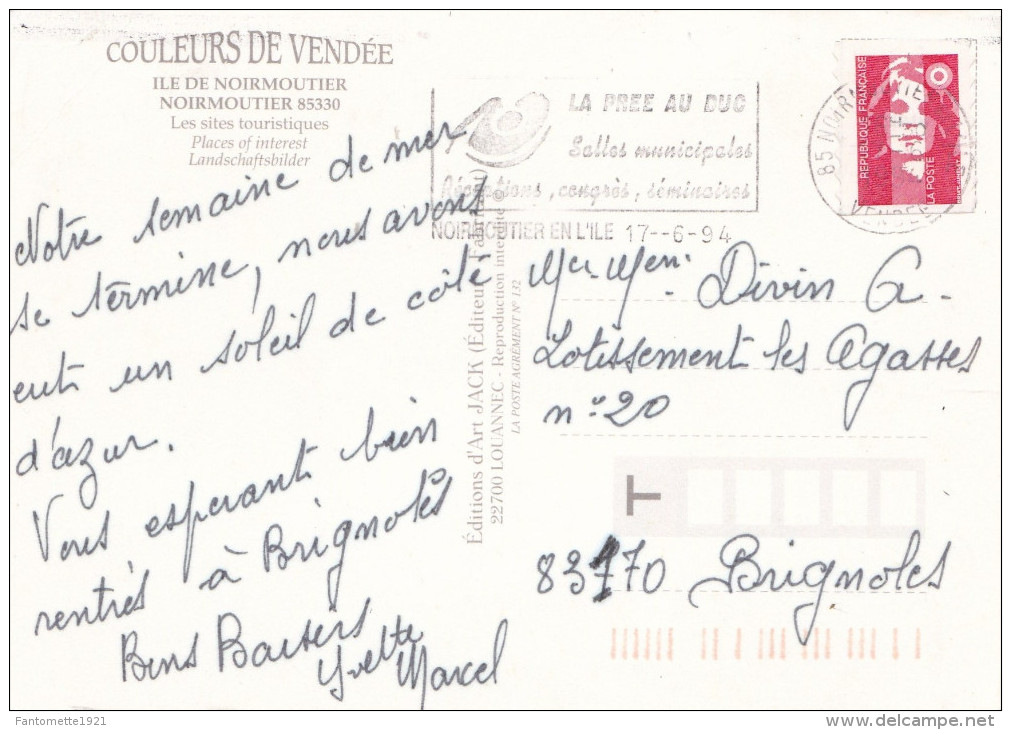 COULEURS DE VENDÉE
ILE DE NOIRMOUTIER
NOIRMOUTIER 85330
Les sites touristiques
Places of interest
Landschaftsbilder
Notre semaine de mer
se termine, nous avons
eut un soleil de côté
d'azur.
Vous esperant bien
rentrés à Brignoles
Bons Baisers
Yvette
Marcel
Éditions d'Art JACK (Éditeur - Fabricant)
22700 LOUANNEC - Reproduction interdite ©
LA POSTE AGRÉMENT N° 132
LA PREE AU DUC
Salles municipales
Réceptions, congrès, séminaires
NOIRMOUTIER EN L'ILE 17--6-94
REPUBLIQUE FRANÇAISE
LA POSTE
85 NOIR
VENDEE
Divin G.
Lotissement les Agasses
n° 20
T
83170 Brignoles
Fantomette1921
delcampe.net